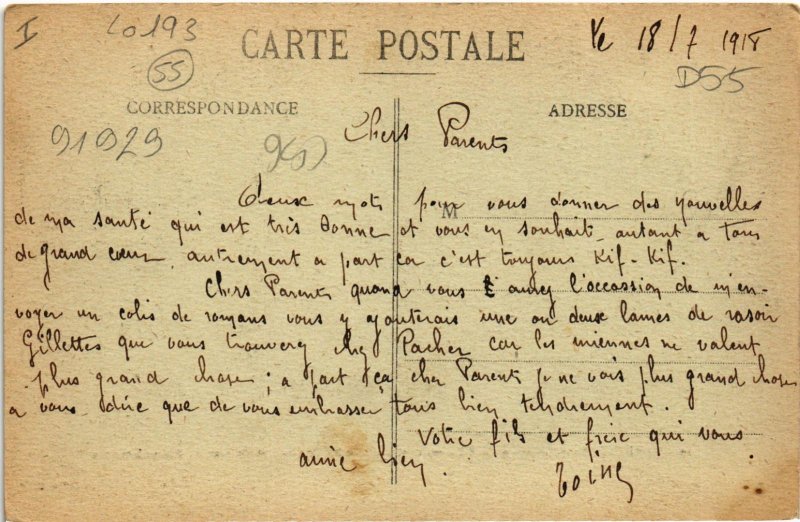 I
LO193
55
CARTE POSTALE
le 18/7 1918
D55
CORRESPONDANCE
ADRESSE
91929
9(1)
Chers Parents
M
Deux mots pour vous donner des nouvelles
de ma santé qui est très bonne et vous en souhaite autant a tous
de grand cœur, autrement a part ça c'est toujours Kif-Kif.
Chers Parents quand vous aurez l'occassion de m'en-
voyer un colis de romans vous y ajouterais une ou deux lames de rasoir
Gillettes que vous trouverez chez Pacher car les miennes ne valent
plus grand chose ; a part ça cher Parents je ne vois plus grand chose
a vous dire que de vous embrasser tous bien tendrement.
Votre fils et frère qui vous
aime bien.